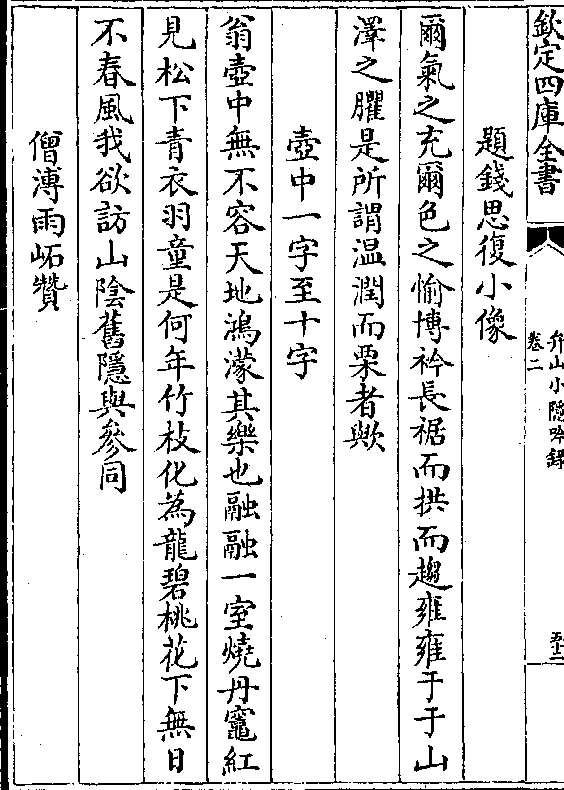 欽定四庫全書
竹山小隱吟錄
卷二
五十二
題錢思復小像
爾氣之充爾色之愉博衿長裾而拱而趨雍雍于于山
澤之臞是所謂温潤而栗者歟
壺中一字至十字
翁壺中無不容天地鴻濛其樂也融融一室燒丹竈紅
見松下青衣羽童是何年竹枝化為龍碧桃花下無日
不春風我欲訪山陰舊隱與參同
僧溥雨岵贊